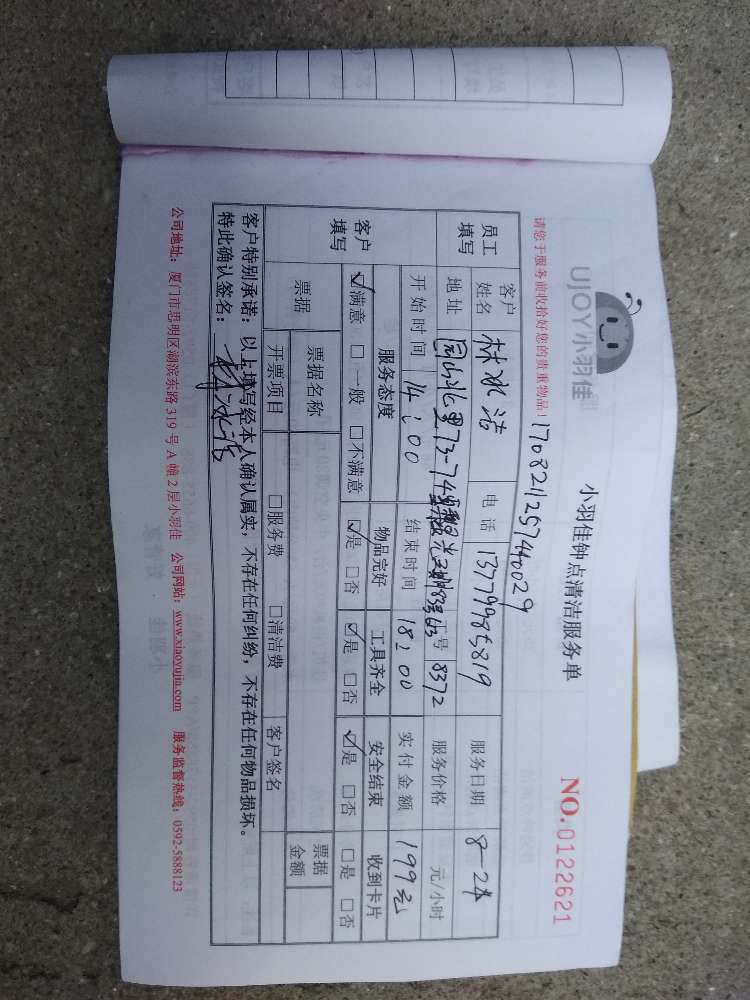 UJOY小羽佳
小羽佳钟点清洁服务单
NO.0122621
请您于服务前收拾好您的贵重物品!
1708211257440029
员工填写 客户姓名 林冰洁 电话 13779985819 服务日期 8-24
地址 73-74 工号 8372 服务价格 元/小时
开始时间 14:00 结束时间 18:00 实付金额 199元
客户填写 服务态度 物品完好 工具齐全 安全结束 收到卡片
☑满意 □一般 □不满意 ☑是 □否 ☑是 □否 ☑是 □否 □是 □否
票据 票据名称 客户签名 票据金额
开票项目 □服务费 □清洁费
客户特别承诺:以上填写经本人确认属实,不存在任何纠纷,不存在任何物品损坏。
特此确认签名:林冰洁
公司地址:厦门市思明区湖滨东路319号A幢2层小羽佳 公司网站:www.xiaoyujia.com 服务监督热线:0592-5888123